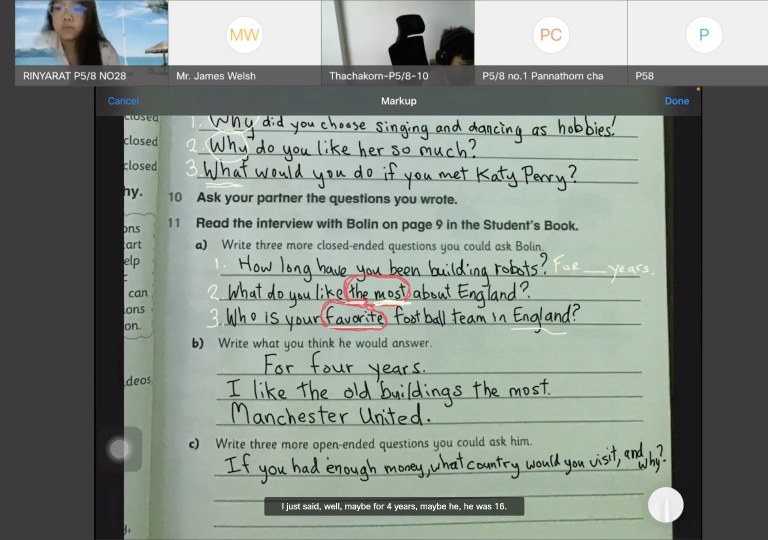 MW
PC
P
RINYARAT P5/8 NO28
Mr. James Welsh
Thachakorn-P5/8-10
P5/8 no.1 Pannathorn cha
P58
Cancel
Markup
Done
closed
closed
closed
hy.
ons
art
elp
can
ons
on.
deos
1. Why did you choose singing and dancing as hobbies?
2. Why do you like her so much?
3. What would you do if you met Katy Perry?
10 Ask your partner the questions you wrote.
11 Read the interview with Bolin on page 9 in the Student's Book.
a) Write three more closed-ended questions you could ask Bolin.
1. How long have you been building robots? For __ years.
2. What do you like the most about England?
3. Who is your favorite football team in England?
b) Write what you think he would answer.
For four years.
I like the old buildings the most.
Manchester United.
c) Write three more open-ended questions you could ask him.
If you had enough money, what country would you visit, and why?
I just said, well, maybe for 4 years, maybe he, he was 16.